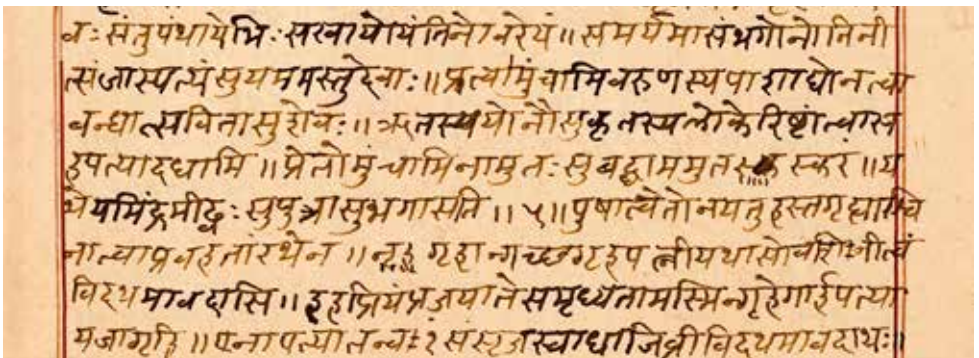 वः संतु पंथा येभिः सखायो यंति नो वरेयं ॥ समर्यमा संभगो नो निनी
त्सं जास्पत्यं सुयममस्तु देवाः ॥ प्रत्वा मुंचामि वरुणस्य पाशाद्येन त्वा
बन्धात्सविता सुशेवः ॥ ऋतस्य योनौ सुकृतस्य लोके रिष्टां त्वा सह
पत्या दधामि ॥ प्रेतो मुंचामि नामुतः सुबद्धाममुतस्करं ॥ य
थेयमिंद्र मीढ्वः सुपुत्रा सुभगा सति ॥ ५ ॥ पुषा त्वेतो नयतु हस्तगृह्याश्वि
ना त्वा प्रवहतां रथेन ॥ गृहान्गच्छ गृहपत्नी यथासो वशिनी त्वं
विदथमावदासि ॥ इह प्रियं प्रजया ते समृध्यतामस्मिन्गृहे गार्हपत्या
य जागृहि ॥ एना पत्या तन्वं१ संसृजस्वाधा जिव्री विदथमावदाथः ॥